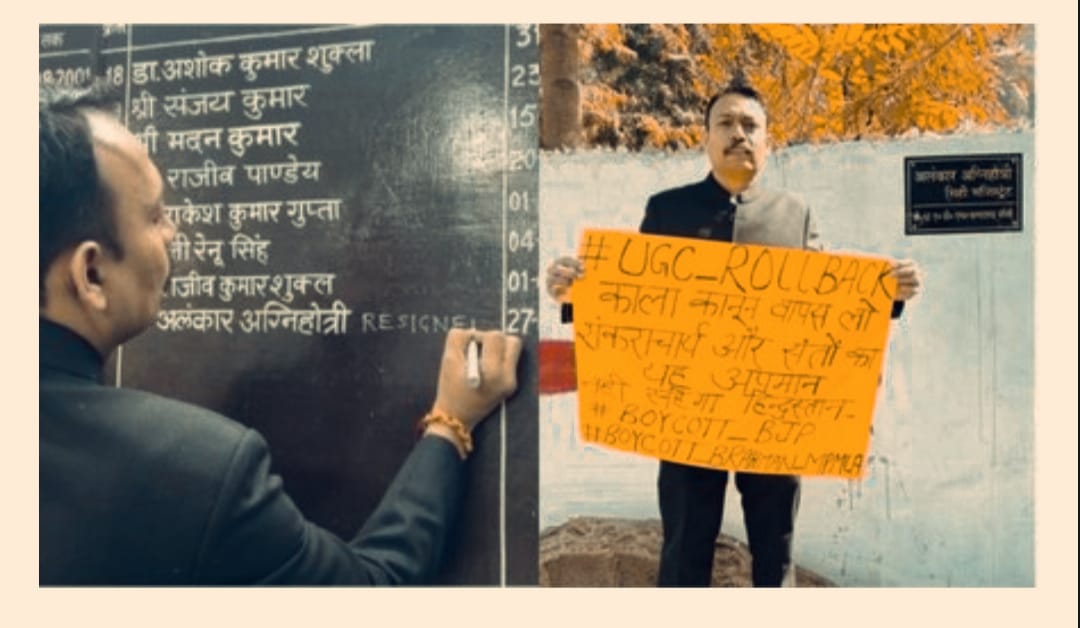 तक
9.2001 18 डा.अशोक कुमार शुक्ला 31
श्री संजय कुमार 23
श्री मदन कुमार 15
राजीव पाण्डेय 20
राकेश कुमार गुप्ता 01
रेनू सिंह 04
राजीव कुमार शुक्ल 01-
अलंकार अग्निहोत्री RESIGNE 27-
अलंकार अग्निहोत्री
सिटी मजिस्ट्रेट
#UGC_ROLLBACK
काला कानून वापस लो
शंकराचार्य और संतों का
यह अपमान
नही सहेगा हिन्दुस्तान-
# BOYCOTT_BJP
#BOYCOTT_BRAHMAN_MPMLA